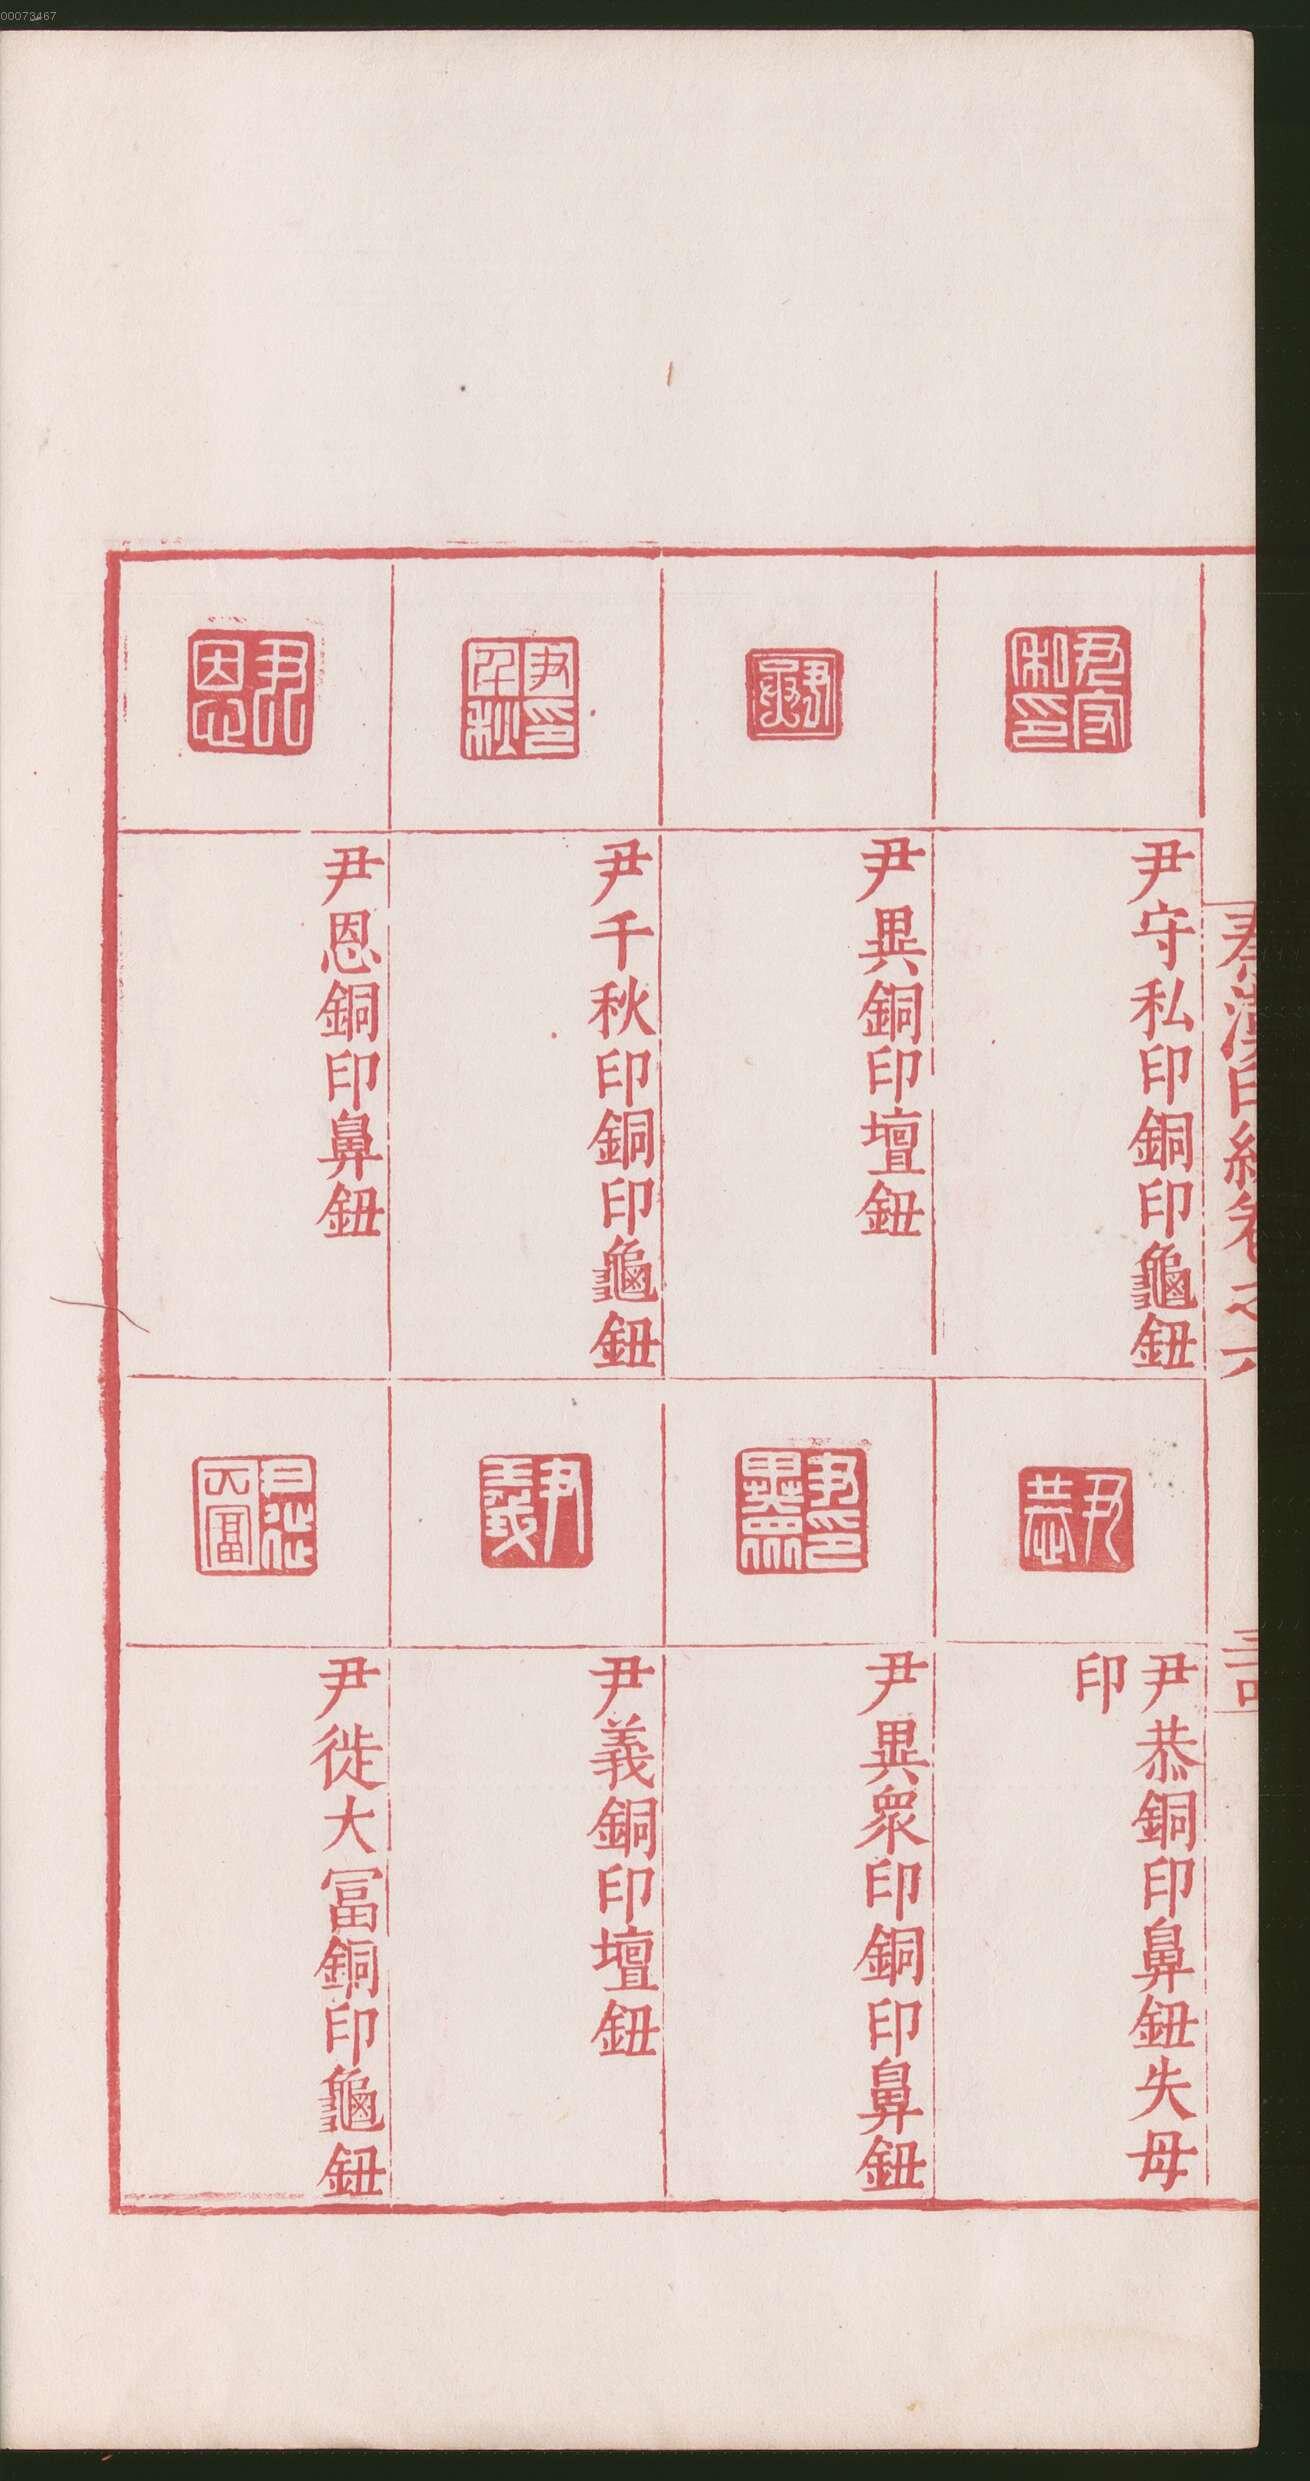 00073467
秦漢印統卷之六
尹守私印銅印龜鈕
尹異銅印壇鈕
尹千秋印銅印龜鈕
尹恩銅印鼻鈕
尹恭銅印鼻鈕失母
印
尹異衆印銅印鼻鈕
尹義銅印壇鈕
尹徙大冨銅印龜鈕